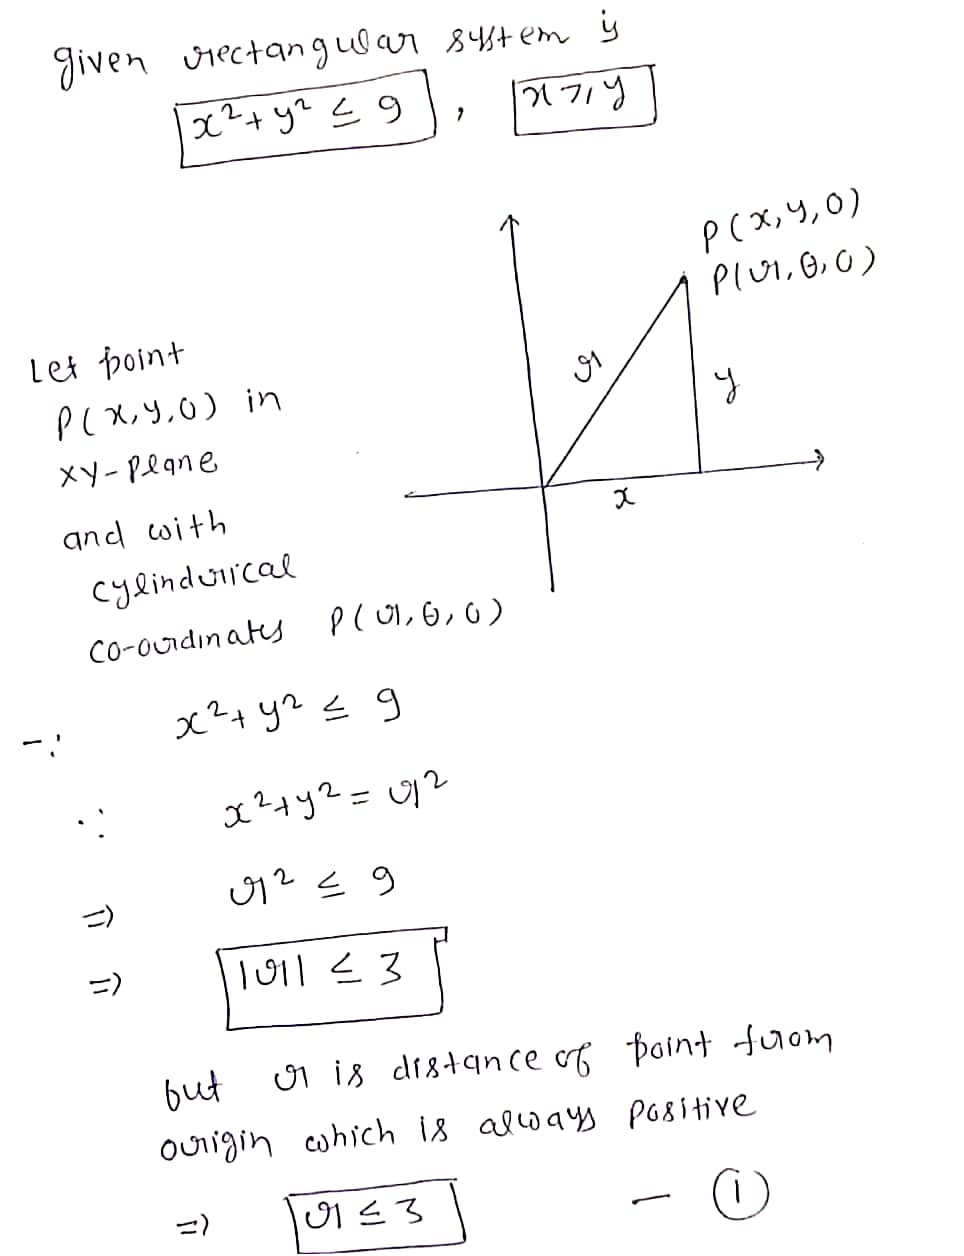 given rectangular system is
x²+y² ≤ 9 , x ≥ y
P(x,y,0)
P(r,θ,0)
r
y
x
Let point
P(x,y,0) in
xy-plane
and with
cylindrical
co-ordinates P(r,θ,0)
∵ x²+y² ≤ 9
∵ x²+y² = r²
⇒ r² ≤ 9
⇒ |r| ≤ 3
but r is distance of point from
origin which is always positive
⇒ r ≤ 3 — ①